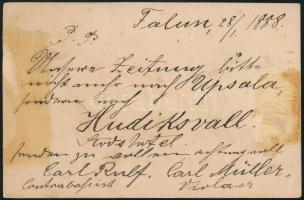 Falun, 28/1. 1888.
P. P.
Unsere Zeitung bitte
nicht mehr nach Upsala,
sondern nach
Hudiksvall.
senden zu wollen achtungsvoll
Carl Rulf. Carl Müller.
Contrabassist Violas